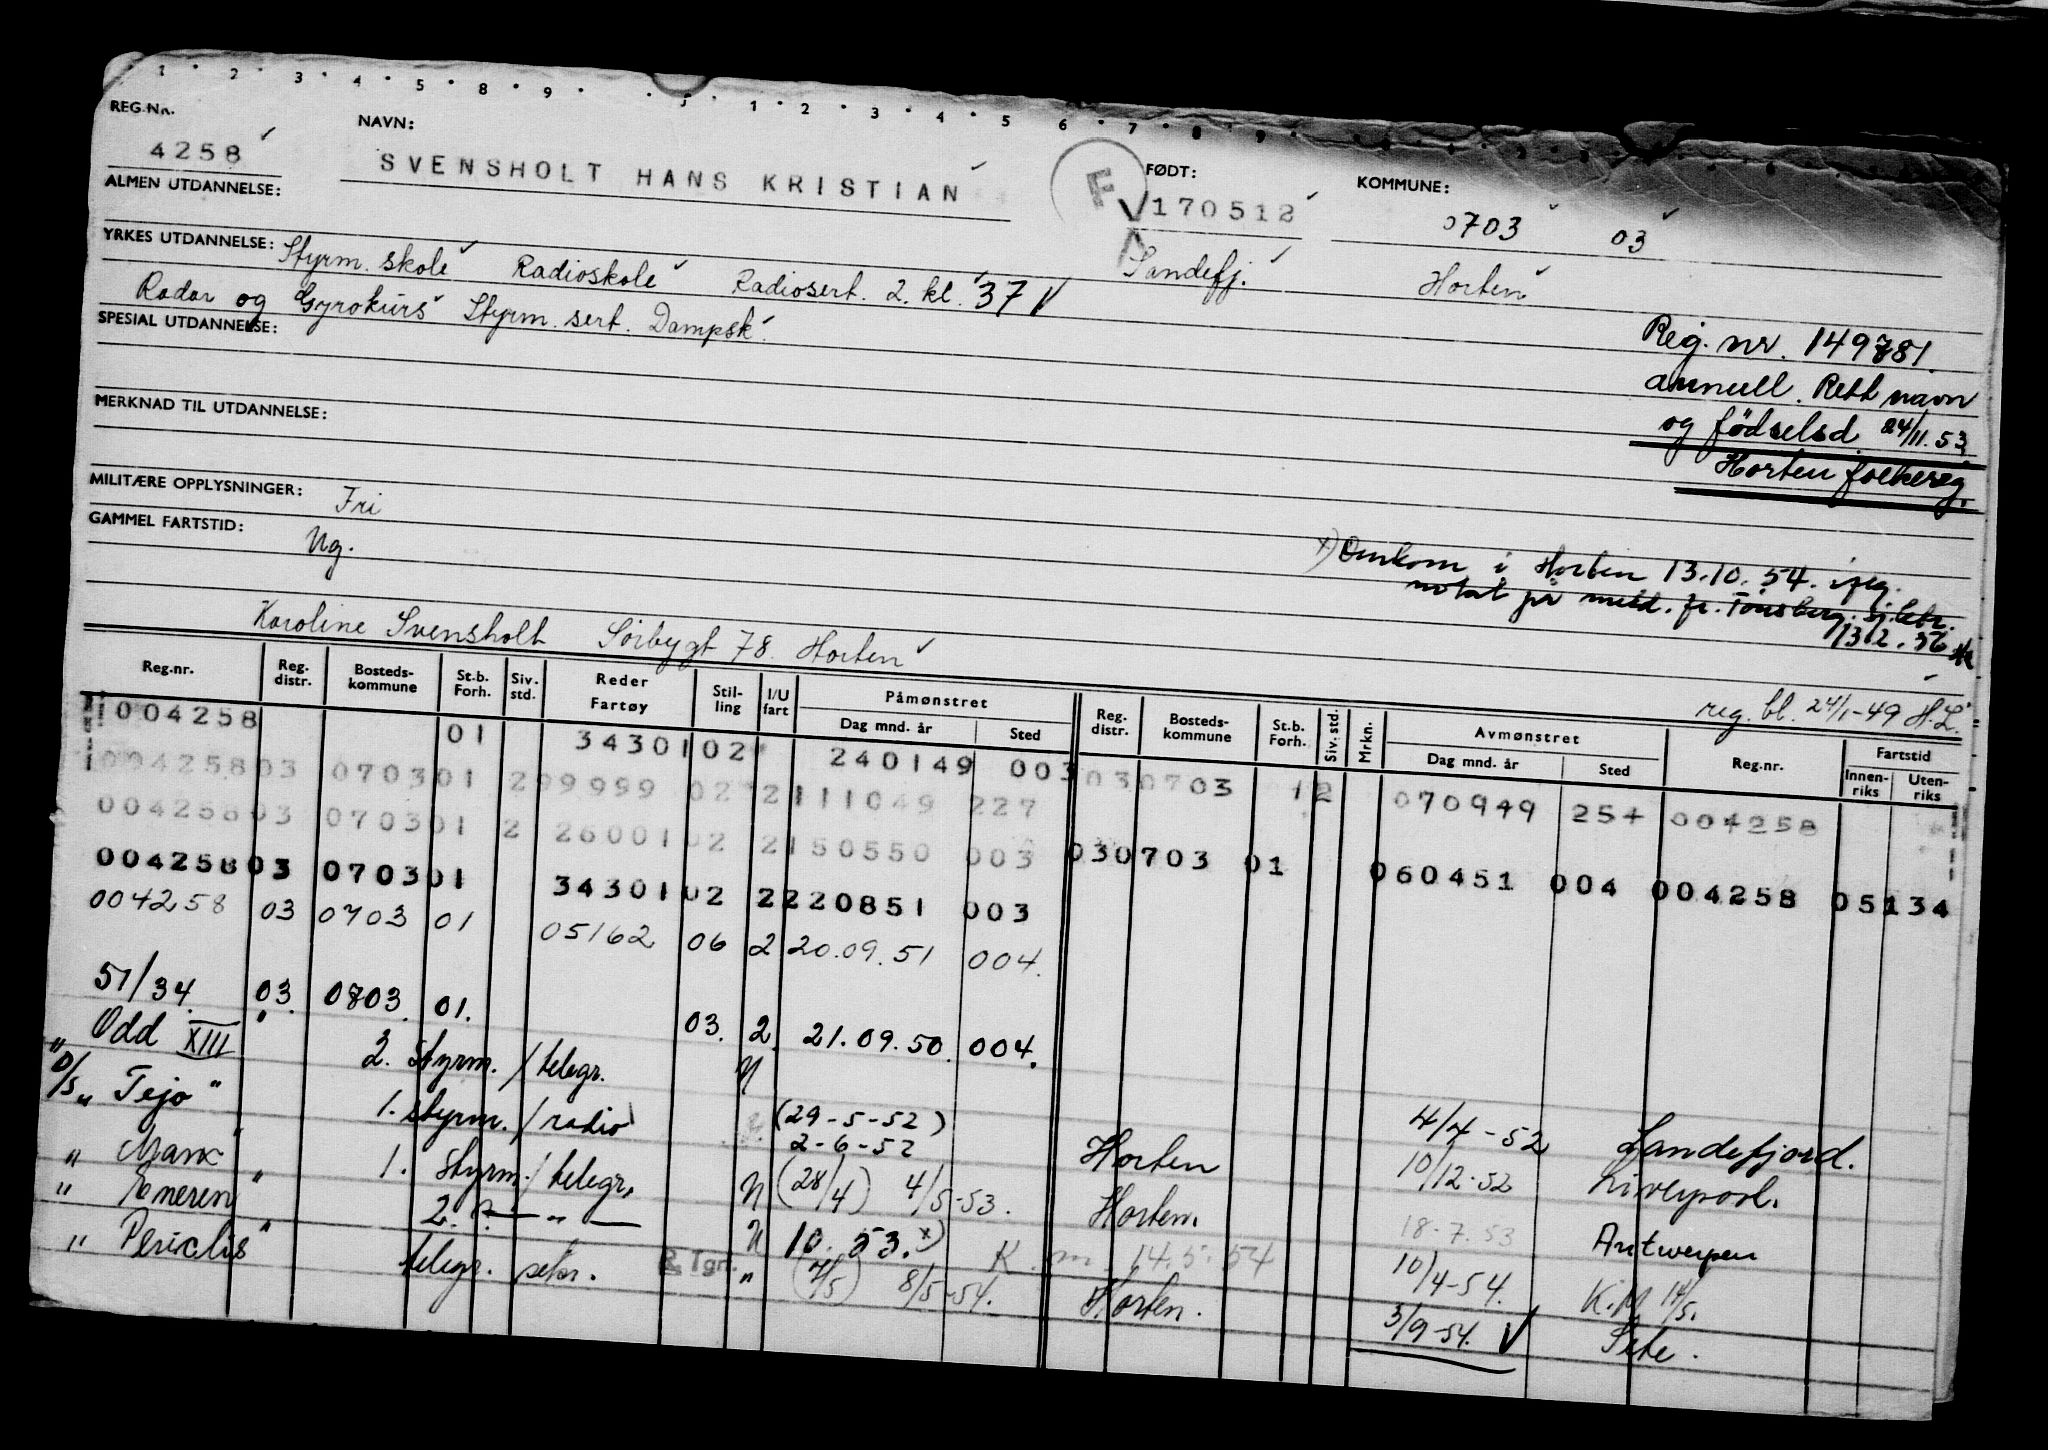 1 2 3 4 5 8 9 5 1 2 3 4 5 6 7 8 9
REG.Nr. NAVN: FØDT: KOMMUNE:
4258 SVENSHOLT HANS KRISTIAN F 170512 0703 03
ALMEN UTDANNELSE: Sandefj. Horten
YRKES UTDANNELSE: Styrm. skole Radioskole Radiosert. 2. kl. 37 V
Radar og Gyrokurs Styrm. sert. Dampsk.
SPESIAL UTDANNELSE:
Reg. nr. 149781.
annull. Rett navn
og fødselsd. 24/11.53
Horten folkereg.
MERKNAD TIL UTDANNELSE:
MILITÆRE OPPLYSNINGER: Fri
GAMMEL FARTSTID: Ng.
x) Omkom i Horten 13.10.54. iflg.
notat på medd. fr. Tønsberg
13.2.56
Karoline Svensholt Sørbygt 78. Horten
reg. bl. 24/1-49 H.L.
Reg.nr. Reg. distr. Bosteds- kommune St.b. Forh. Siv. std. Reder Fartøy Stil- ling I/U fart Påmønstret Dag mnd. år Sted Reg. distr. Bosteds- kommune St.b. Forh. Siv. std. Mrkn. Avmønstret Dag mnd. år Sted Reg.nr. Fartstid Innen- riks Uten- riks
004258 01 34301 02 240149 003 030703 12 070949 254 004258
004258 03 0703 01 2 99999 02 2 111049 227
004258 03 0703 01 2 26001 02 2 150550 003 030703 01 060451 004 004258 05134
004258 03 0703 01 34301 02 2 220851 003
004258 03 0703 01 05162 06 2 20.09.51 004.
51/34 03. 0803. 01. 03. 2. 21.09.50. 004.
" Odd XIII " 2. Styrm. / telegr. N 4/4-52 Sandefjord.
D/S " Tejo " 1. styrm. / radio (29-5-52) 2-6-52 Horten 10/12-52 Liverpool.
" Marx " 1. Styrm. / telegr. N (28/4) 4/5-53. Horten. 18-7.53 Antwerpen
" Eneren " 2. — " — N 10. 53. x) K. m. 14.5.54 10/4-54. K.M 14/5.
" Periclis " telegr. R Tgr. " (7/5) 8/5-54. Horten. 3/9-54. V Sete.